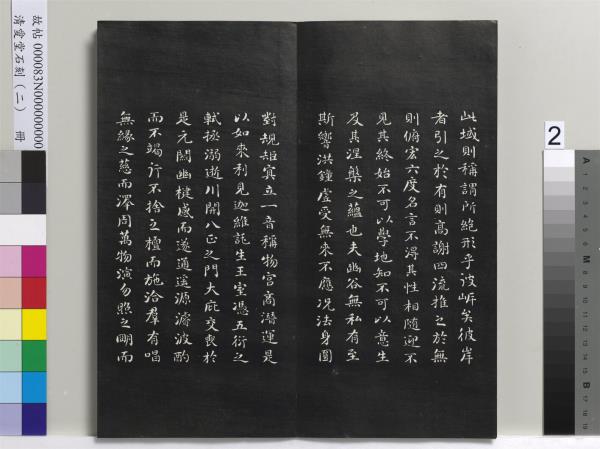 故帖 000083N000000000
清愛堂石刻(二) 冊
此域則稱謂所絕形乎彼岸矣彼岸
者引之於有則高謝四流推之於無
則俯宏六度名言不得其性相隨迎不
見其終始不可以學地知不可以意生
及其涅槃之蘊也夫幽谷無私有至
斯響洪鐘虛受無來不應况法身圓
對規矩冥立一音稱物宮商潛運是
以如來利見迦維託生王室憑五衍之
軾拯溺逝川開八正之門大庇交喪於
是元關幽楗感而遂通遥源濬波酌
而不竭行不捨之檀而施洽羣有唱
無緣之慈而澤周萬物演勿照之明而
2
A
M
B